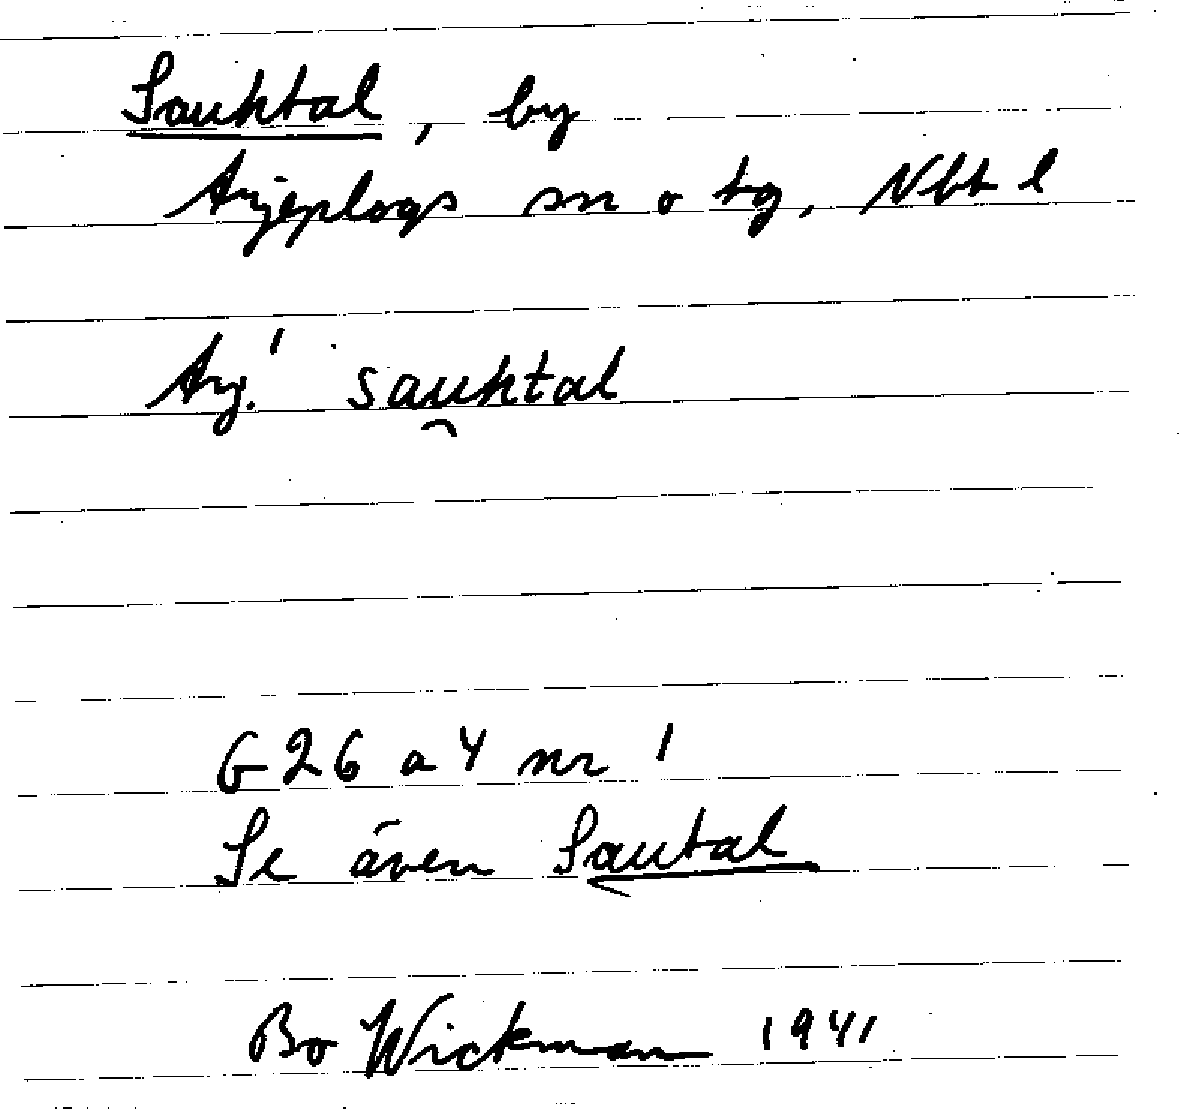 Sauhtal, by
Arjeplogs sn o tg, Nbt l
Arj.¹ sau̯htal
G 26 a 4 nr 1
Se även Sautal
Bo Wickman 1941